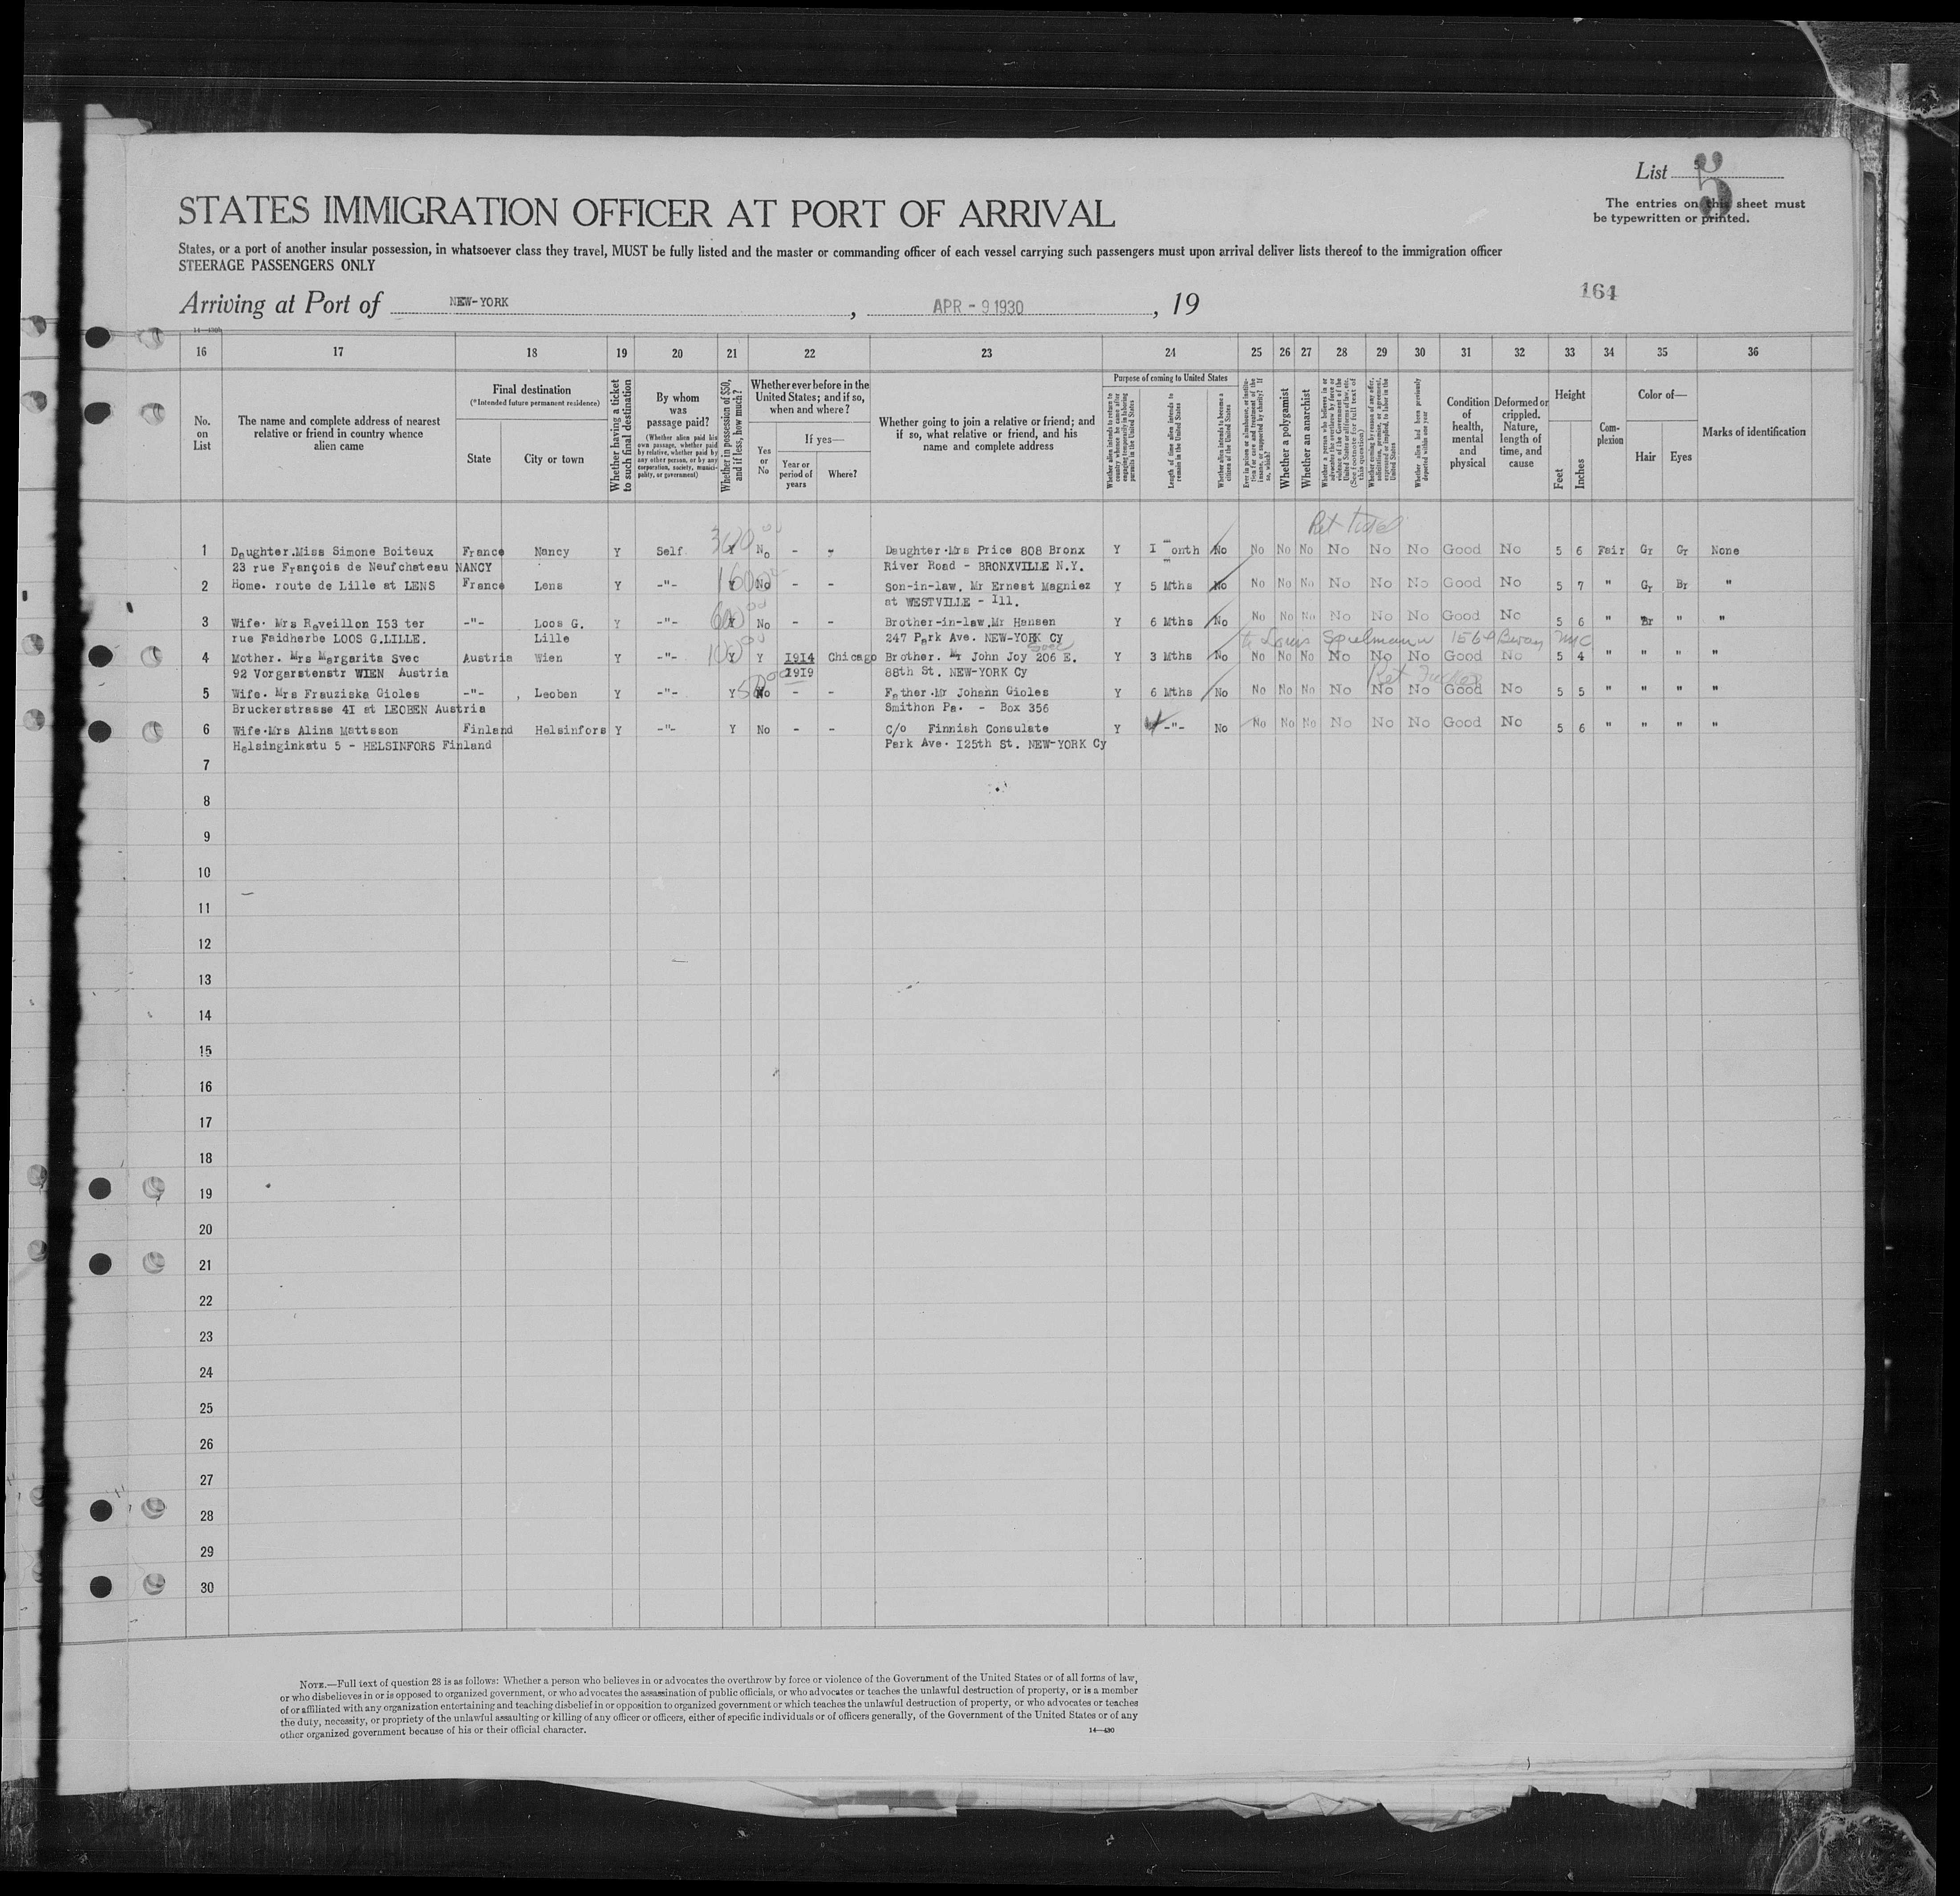 List 5
5
The entries on this sheet must
be typewritten or printed.
STATES IMMIGRATION OFFICER AT PORT OF ARRIVAL
States, or a port of another insular possession, in whatsoever class they travel, MUST be fully listed and the master or commanding officer of each vessel carrying such passengers must upon arrival deliver lists thereof to the immigration officer
STEERAGE PASSENGERS ONLY
164
Arriving at Port of NEW-YORK, APR - 9 1930, 19
14—430
16 17 18 19 20 21 22 23 24 25 26 27 28 29 30 31 32 33 34 35 36
No. on List
The name and complete address of nearest relative or friend in country whence alien came
Final destination
(*Intended future permanent residence)
State
City or town
Whether having a ticket to such final destination
By whom was passage paid?
(Whether alien paid his own passage, whether paid by relative, whether paid by any other person, or by any corporation, society, municipality, or government)
Whether in possession of $50, and if less, how much?
Whether ever before in the United States; and if so, when and where?
Yes or No
If yes—
Year or period of years
Where?
Whether going to join a relative or friend; and if so, what relative or friend, and his name and complete address
Purpose of coming to United States
Whether alien intends to return to country whence he came after engaging temporarily in laboring pursuits in the United States
Length of time alien intends to remain in the United States
Whether alien intends to become a citizen of the United States
Ever in prison or almshouse, or institution for care and treatment of the insane, or supported by charity? If so, which?
Whether a polygamist
Whether an anarchist
Whether a person who believes in or advocates the overthrow by force or violence of the Government of the United States or all forms of law, etc. (See footnote for full text of this question.)
Whether coming by reason of any offer, solicitation, promise, or agreement, expressed or implied, to labor in the United States
Whether alien had been previously deported within one year
Condition of health, mental and physical
Deformed or crippled. Nature, length of time, and cause
Height
Feet
Inches
Complexion
Color of—
Hair
Eyes
Marks of identification
1 Daughter.Miss Simone Boiteux France Nancy Y Self Y No - - Daughter.Mrs Price 808 Bronx Y I month No No No No No No No Good No 5 6 Fair Gr Gr None
23 rue François de Neufchateau NANCY River Road - BRONXVILLE N.Y.
2 Home. route de Lille at LENS France Lens Y -"- Y No - - Son-in-law, Mr Ernest Magniez Y 5 Mths No No No No No No No Good No 5 7 " Gr Br "
at WESTVILLE - Ill.
3 Wife. Mrs Reveillon I53 ter -"- Loos G. Y -"- Y No - - Brother-in-law.Mr Hansen Y 6 Mths No No No No No No No Good No 5 6 " Br " "
rue Faidherbe LOOS G.LILLE. Lille 247 Park Ave. NEW-YORK Cy
to Louis Spielmann
4 Mother. Mrs Margarita Svec Austria Wien Y -"- Y Y 1914 Chicago Brother. Mr John Joy 206 E. Y 3 Mths No No No No No No No Good No 5 4 " " " "
92 Vorgartenstr WIEN Austria 1919 88th St. NEW-YORK Cy
5 Wife. Mrs Frauziska Gioles -"- Leoben Y -"- Y No - - Father.Mr Johann Gioles Y 6 Mths No No No No No No No Good No 5 5 " " " "
Bruckerstrasse 4I at LEOBEN Austria Smithon Pa. - Box 356
6 Wife.Mrs Alina Mattsson Finland Helsinfors Y -"- Y No - - C/o Finnish Consulate Y -"- No No No No No No No Good No 5 6 " " " "
Helsinginkatu 5 - HELSINFORS Finland Park Ave. I25th St. NEW-YORK Cy
7
8
9
10
11
12
13
14
15
16
17
18
19
20
21
22
23
24
25
26
27
28
29
30
NOTE.—Full text of question 28 is as follows: Whether a person who believes in or advocates the overthrow by force or violence of the Government of the United States or of all forms of law,
or who disbelieves in or is opposed to organized government, or who advocates the assassination of public officials, or who advocates or teaches the unlawful destruction of property, or is a member
of or affiliated with any organization entertaining and teaching disbelief in or opposition to organized government or which teaches the unlawful destruction of property, or who advocates or teaches
the duty, necessity, or propriety of the unlawful assaulting or killing of any officer or officers, either of specific individuals or of officers generally, of the Government of the United States or of any
other organized government because of his or their official character.
14—430